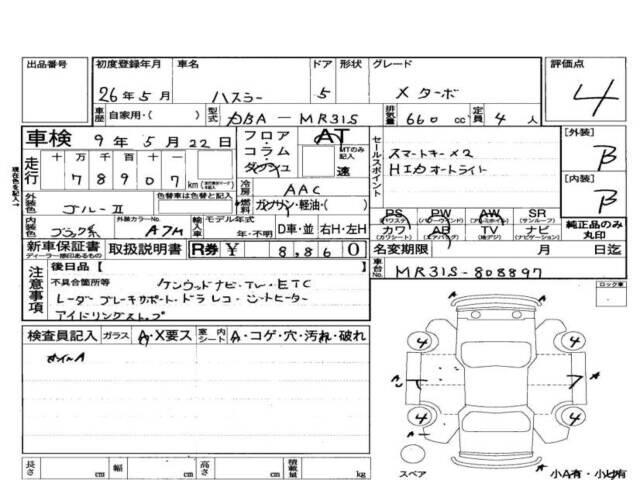 出品番号 初度登録年月 車名 ドア 形状 グレード 評価点
26年5月 ハスラー 5 X ターボ 4
車歴 自家用・( ) 型式 DBA-MR31S 排気量 660 cc 定員 4 人
車検 9年5月22日 フロア・コラム・ダッシュ AT MTのみ記入 速 セールスポイント スマートキーX2 [外装] B
走行 十 万 千 百 十 一
7 8 9 0 7 km
HIDオートライト [内装] B
冷房 AAC
外装色 ブルーII 色替車は色替と記入 燃料 ガソリン・軽油・( )
内装色 ブラック系 外装カラーNo. A7H 輸入車 モデル年式 年・不明 D車・並 右H・左H
PS (パワステ) PW (パワーウィンド) AW (アルミホイル) SR (サンルーフ)
カワ (カワシート) AB (エアバッグ) TV (地デジ) ナビ (ナビゲーション)
純正品のみ丸印
新車保証書 ディーラー捺印あるもの 取扱説明書 R券 ¥ 8,860 名変期限 月 日迄
注意事項 後日品( ) 車台No. MR31S-808897
不具合箇所等 ケンウッドナビ・TV・ETC
レーダーブレーキサポート・ドラレコ・シートヒーター
アイドリングストップ
ロック車
検査員記入 ガラス A・X要ス 室内シート A・コゲ・穴・汚れ・破れ
ホイールA
4 4
A A
4 4
A
スペア
長さ cm 幅 cm 高さ cm 積載量 kg
小A有・小U有